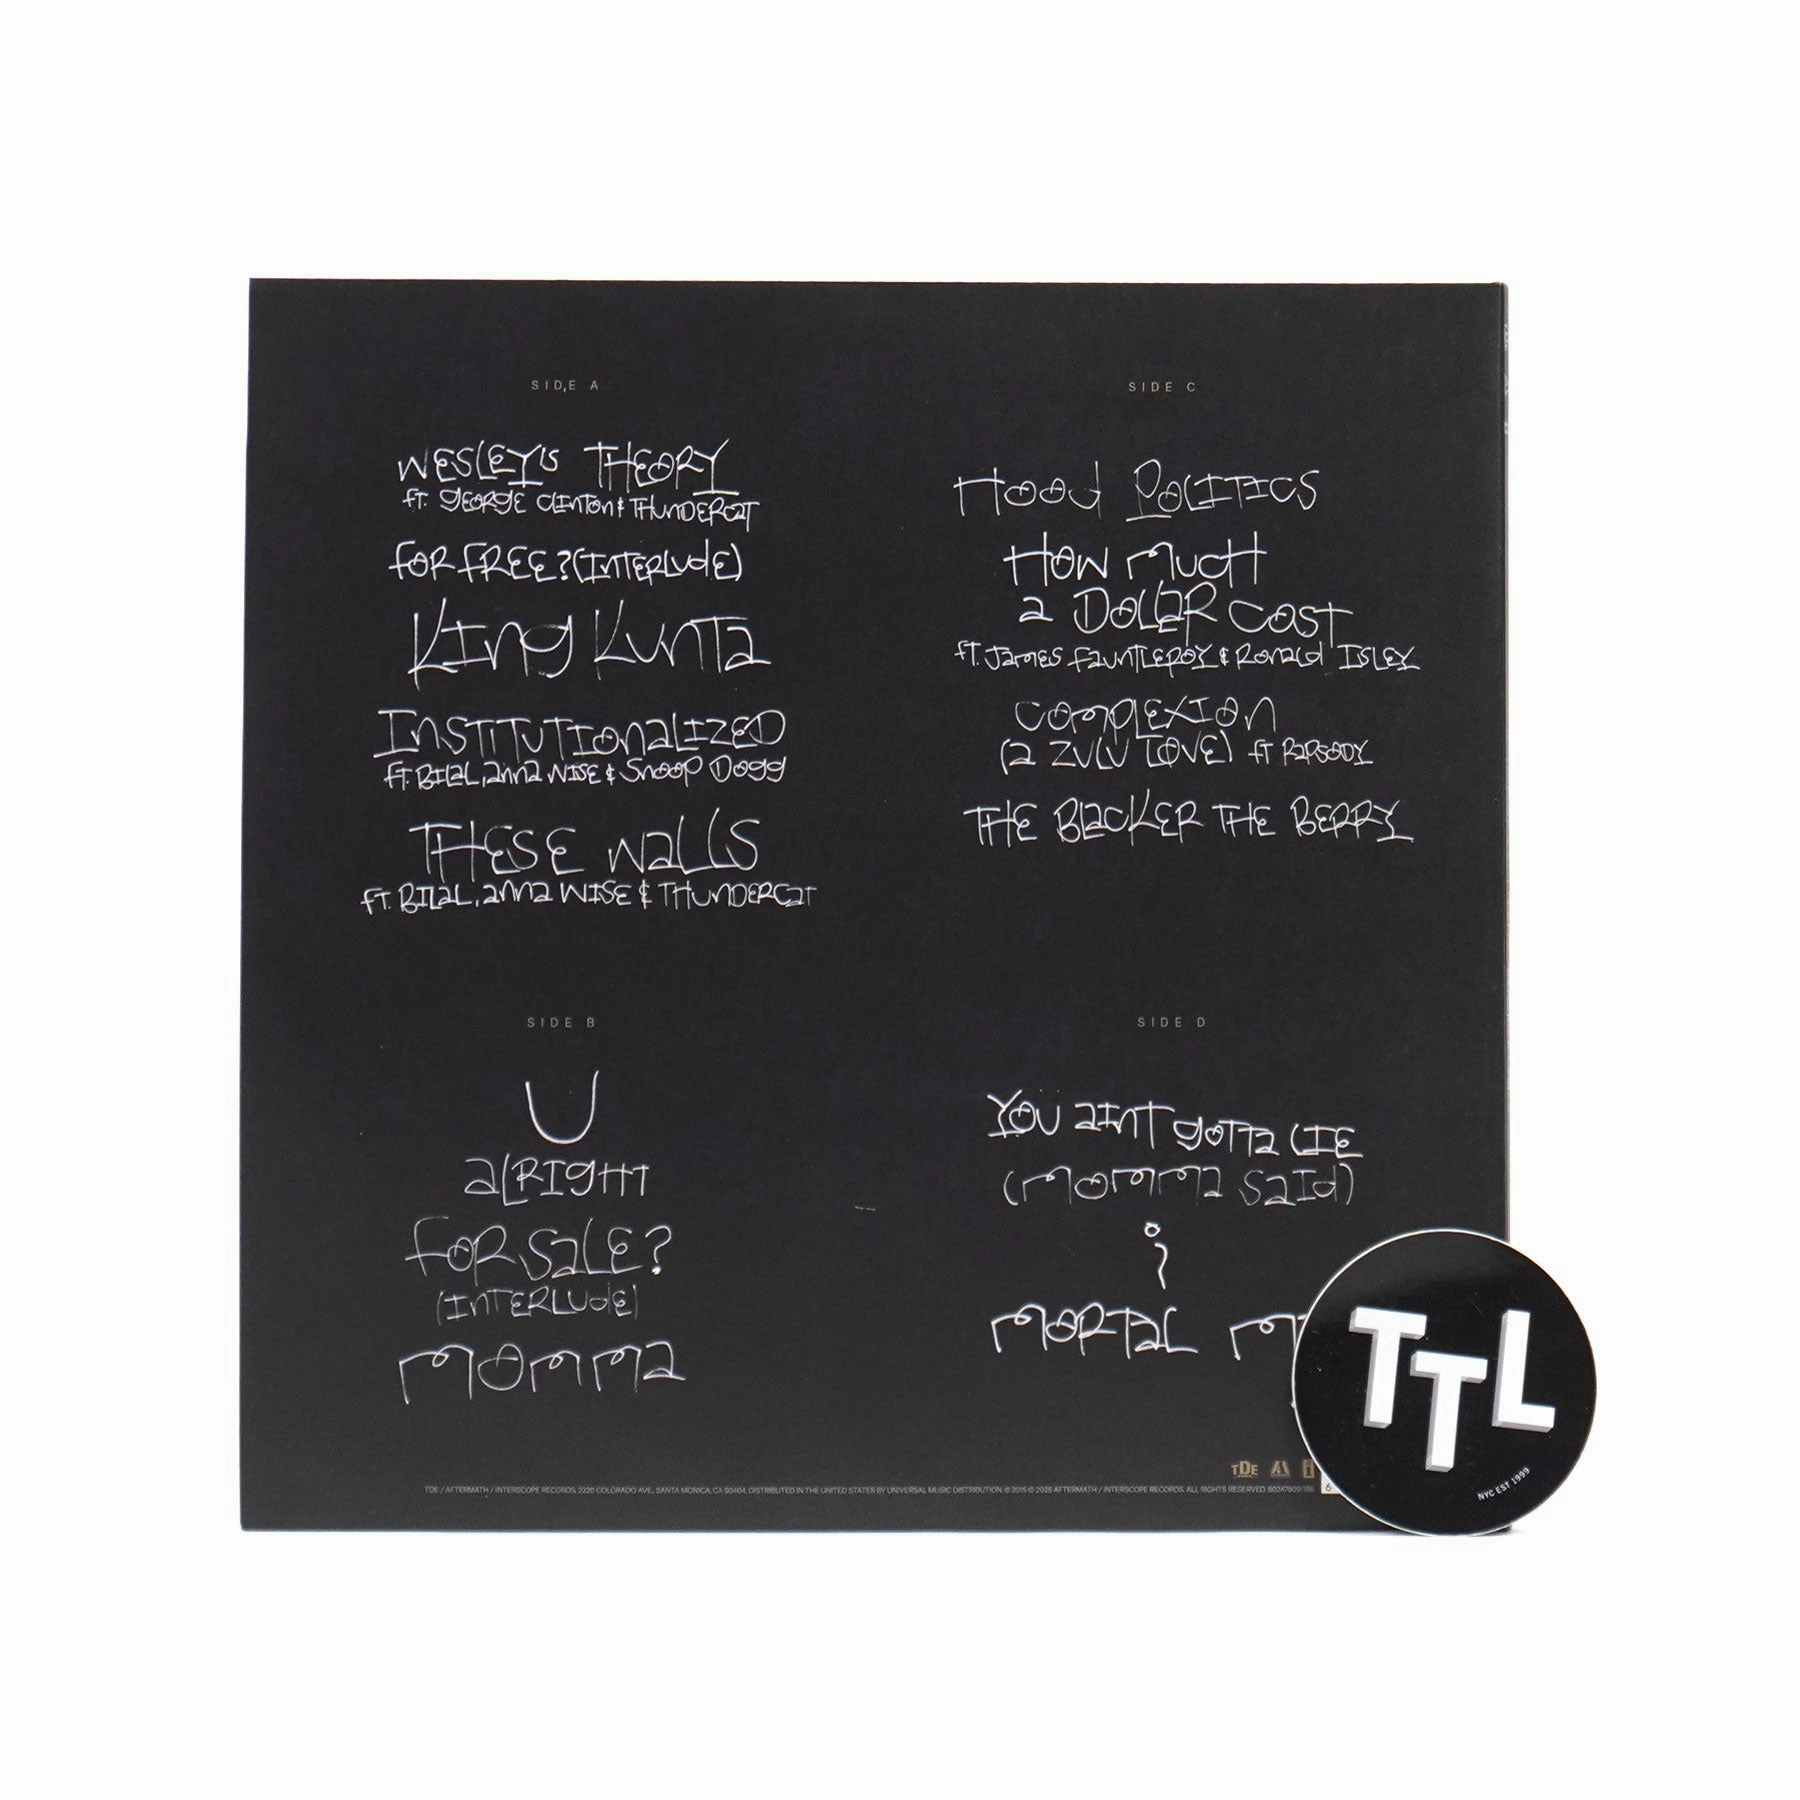 SIDE A
WESLEY'S THEORY
ft. GEORGE CLINTON & THUNDERCAT
FOR FREE? (INTERLUDE)
KING KUNTA
INSTITUTIONALIZED
ft. BILAL, anna WISE & SNOOP DOGG
THESE WALLS
ft. BILAL, anna WISE & THUNDERCAT
SIDE B
U
ALRIGHT
FOR SALE?
(INTERLUDE)
MOMMA
SIDE C
HOOD POLITICS
HOW MUCH
a DOLLAR COST
ft. JAMES FAUNTLEROY & RONALD ISLEY
COMPLEXION
(a ZULU LOVE) ft RAPSODY
THE BLACKER THE BERRY
SIDE D
YOU AINT GOTTA LIE
(MOMMA SAID)
i
MORTAL M
TDE
TDE / AFTERMATH / INTERSCOPE RECORDS, 2220 COLORADO AVE., SANTA MONICA, CA 90404. DISTRIBUTED IN THE UNITED STATES BY UNIVERSAL MUSIC DISTRIBUTION. ℗ 2015 © 2025 AFTERMATH / INTERSCOPE RECORDS. ALL RIGHTS RESERVED.
6
TTL
NYC EST 1999